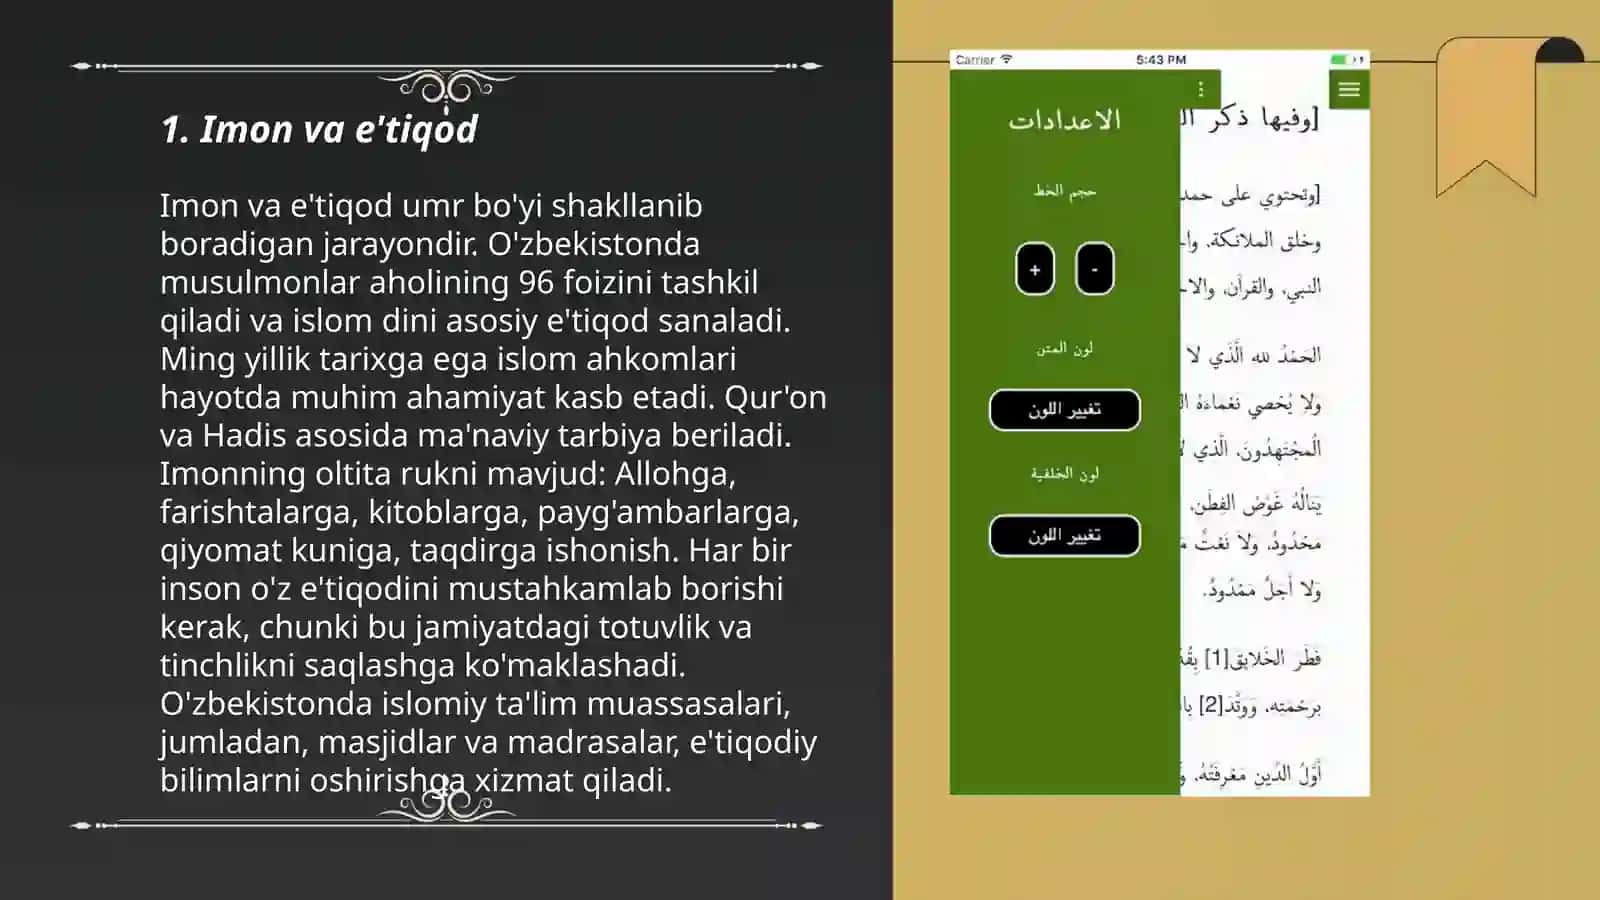 1. Imon va e'tiqod
Imon va e'tiqod umr bo'yi shakllanib
boradigan jarayondir. O'zbekistonda
musulmonlar aholining 96 foizini tashkil
qiladi va islom dini asosiy e'tiqod sanaladi.
Ming yillik tarixga ega islom ahkomlari
hayotda muhim ahamiyat kasb etadi. Qur'on
va Hadis asosida ma'naviy tarbiya beriladi.
Imonning oltita rukni mavjud: Allohga,
farishtalarga, kitoblarga, payg'ambarlarga,
qiyomat kuniga, taqdirga ishonish. Har bir
inson o'z e'tiqodini mustahkamlab borishi
kerak, chunki bu jamiyatdagi totuvlik va
tinchlikni saqlashga ko'maklashadi.
O'zbekistonda islomiy ta'lim muassasalari,
jumladan, masjidlar va madrasalar, e'tiqodiy
bilimlarni oshirishga xizmat qiladi.
Carrier 5:43 PM
الاعدادات
حجم الخط
+ -
لون المتن
تغيير اللون
لون الخلفية
تغيير اللون
[وفيها ذكر
[وتحتوي على حمد
وخلق الملائكة، واخ
النبي، والقرآن، والاح
الحَمْدُ لله الَّذَي لا
وَلا يُحْصي نَعْمَاءَهُ
الُمجْتَهِدُونَ، الَّذي
يَنَالُهُ غَوْصُ الفِطَن،
مَحْدُودٌ، وَلاَ نَعْتٌ
وَلا أَجَلٌ مَمْدُودٌ.
فَطَرَ الخَلايِقَ[1]
برَحْمَتِه، وَوَتَّدَ[2]
أَوَّلُ الدِّينِ مَعْرِفَتُهُ،